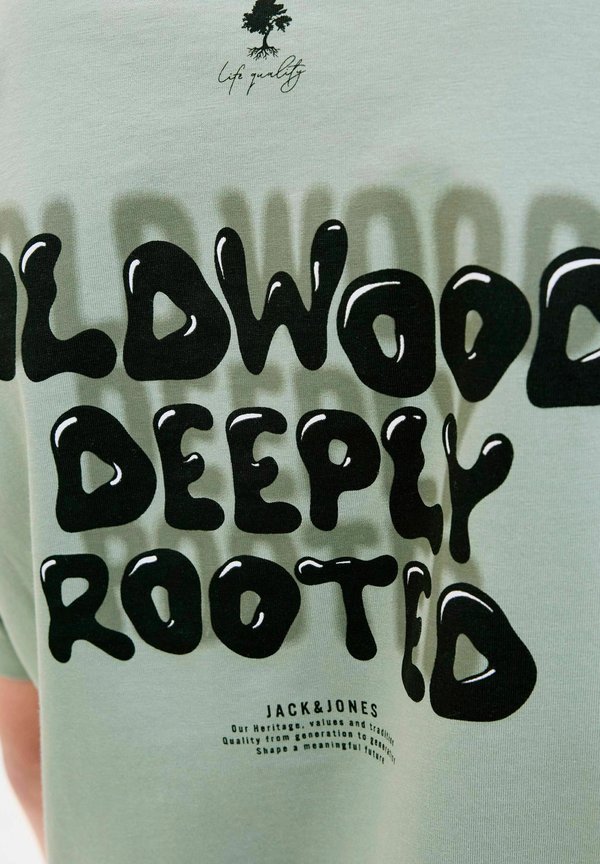 Life quality
ILDWOOD
DEEPLY
ROOTED
JACK&JONES
Our Heritage, values and tradition
Quality from generation to generation
Shape a meaningful future